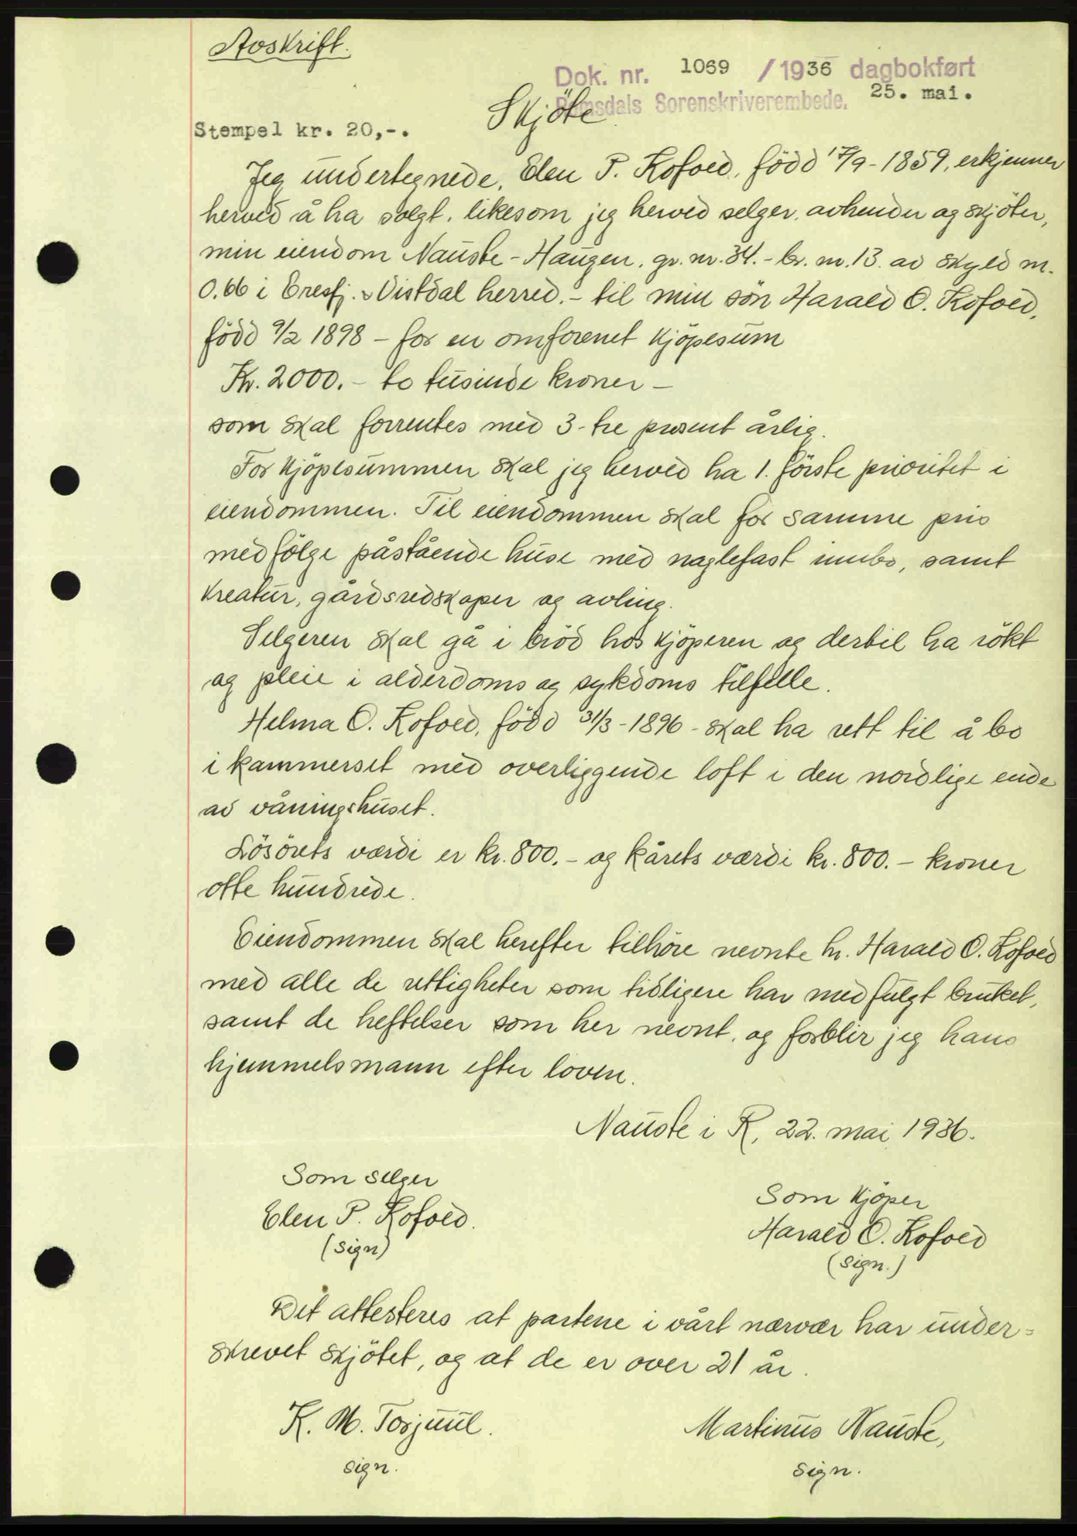 Avskrift.
Dok. nr. 1069 / 1936 dagbokført
Romsdals Sorenskriverembede. 25. mai.
Skjöte
Stempel kr. 20,-.
Jeg undertegnede, Elen P. Kofoed, född 17/9-1859, erkjenner
herved å ha solgt, likesom jeg herved selger, avhender og skjöter,
min eiendom Nauste-Haugen, gr. nr. 34.- br. nr. 13. av skyld m.
0.66 i Eresfj. & Vistdal herred.- til min sön Harald O. Kofoed,
född 9/2 1898 - for en omforenet kjöpesum
Kr. 2000.- to tusinde kroner -
som skal forrentes med 3-tre prosent årlig.
For kjöpesummen skal jeg herved ha 1. förste prioritet i
eiendommen. Til eiendommen skal for samme pris
medfölge påstående huse med naglefast innbo, samt
kreatur, gårdsredskaper og avling.
Selgeren skal gå i bröd hos kjöperen og dertil ha rökt
og pleie i alderdoms og sykdoms tilfelle.
Helma O. Kofoed, född 31/3-1896 - skal ha rett til å bo
i kammerset med overliggende loft i den nordlige ende
av våningshuset.
Lösörets værdi er kr. 800.- og kårets værdi kr. 800.- kroner
otte hundrede.
Eiendommen skal herefter tilhöre nevnte hr. Harald O. Kofoed
med alle de rettigheter som tidligere har medfulgt bruket,
samt de heftelser som her nevnt, og forblir jeg hans
hjemmelsmann efter loven.
Nauste i R, 22. mai 1936.
Som selger
Elen P. Kofoed.
(sign)
Som kjöper
Harald O. Kofoed
(sign.)
Det attesteres at partene i vårt nærvær har under=
skrevet skjötet, og at de er over 21 år.
K. M. Torjuul.
sign.
Martinus Nauste,
sign.